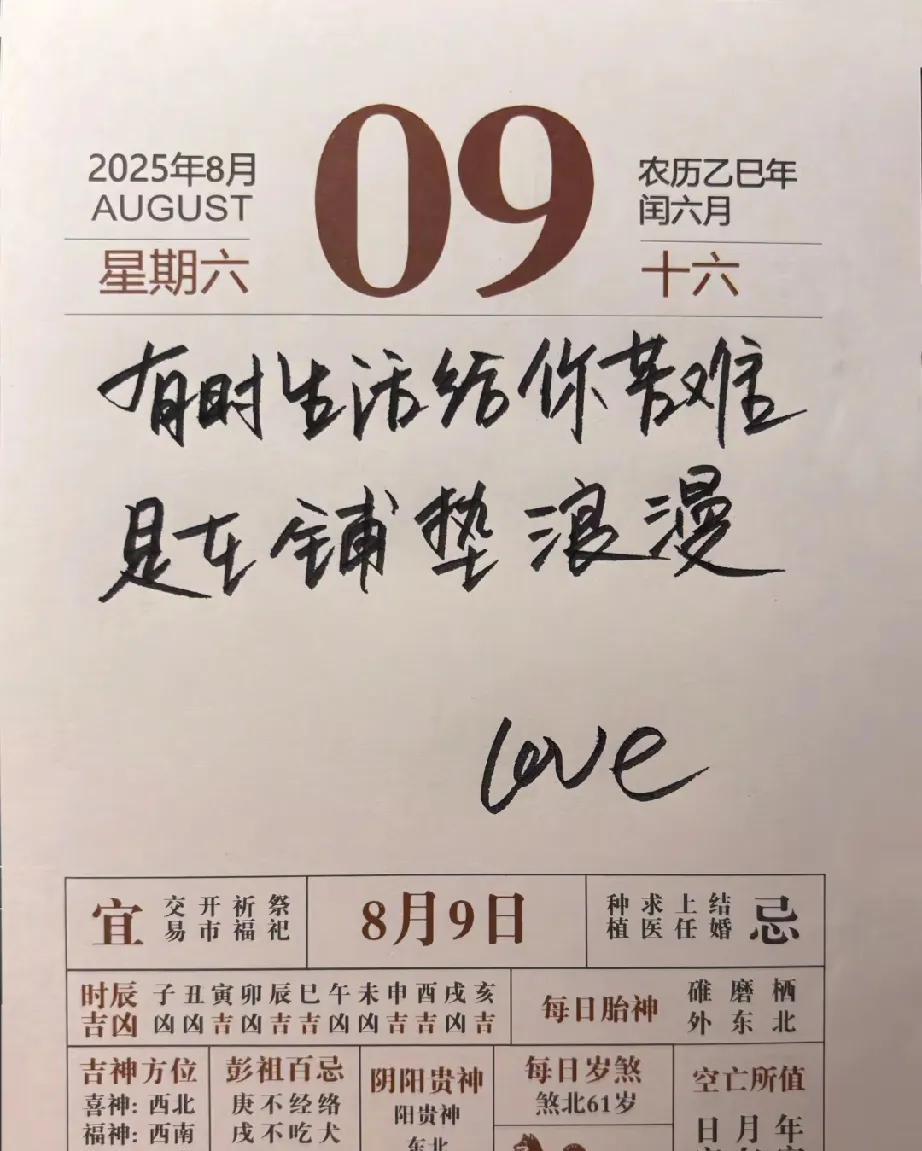 2025年8月
AUGUST
星期六
09
农历乙巳年
闰六月
十六
有时生活给你苦难
是在铺垫浪漫
love
宜
交易 开市 祈福 祭祀
8月9日
种植 求医 上任 结婚
忌
时辰吉凶
子丑寅卯辰巳午未申酉戌亥
凶凶吉凶吉吉凶凶吉吉凶吉
每日胎神
碓磨栖
外东北
吉神方位
喜神: 西北
福神: 西南
彭祖百忌
庚不经络
戌不吃犬
阴阳贵神
阳贵神
东北
每日岁煞
煞北61岁
空亡所值
日月年